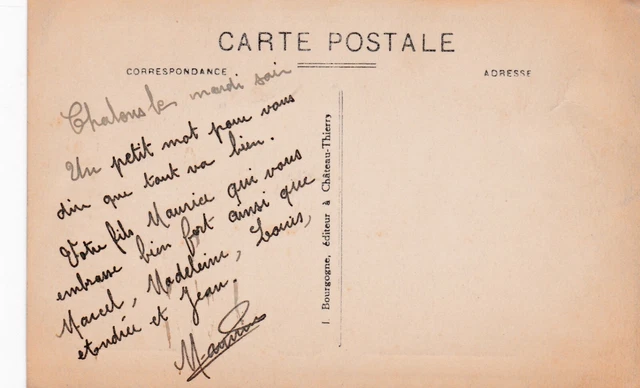 CARTE POSTALE
CORRESPONDANCE
ADRESSE
Chalons le mardi soir
Un petit mot pour vous
dire que tout va bien.
Votre fils Maurice qui vous
embrasse bien fort ainsi que
Marcel, Madeleine, Louis,
et Andrée et Jean.
Maurice
Bourgogne, éditeur à Château-Thierry